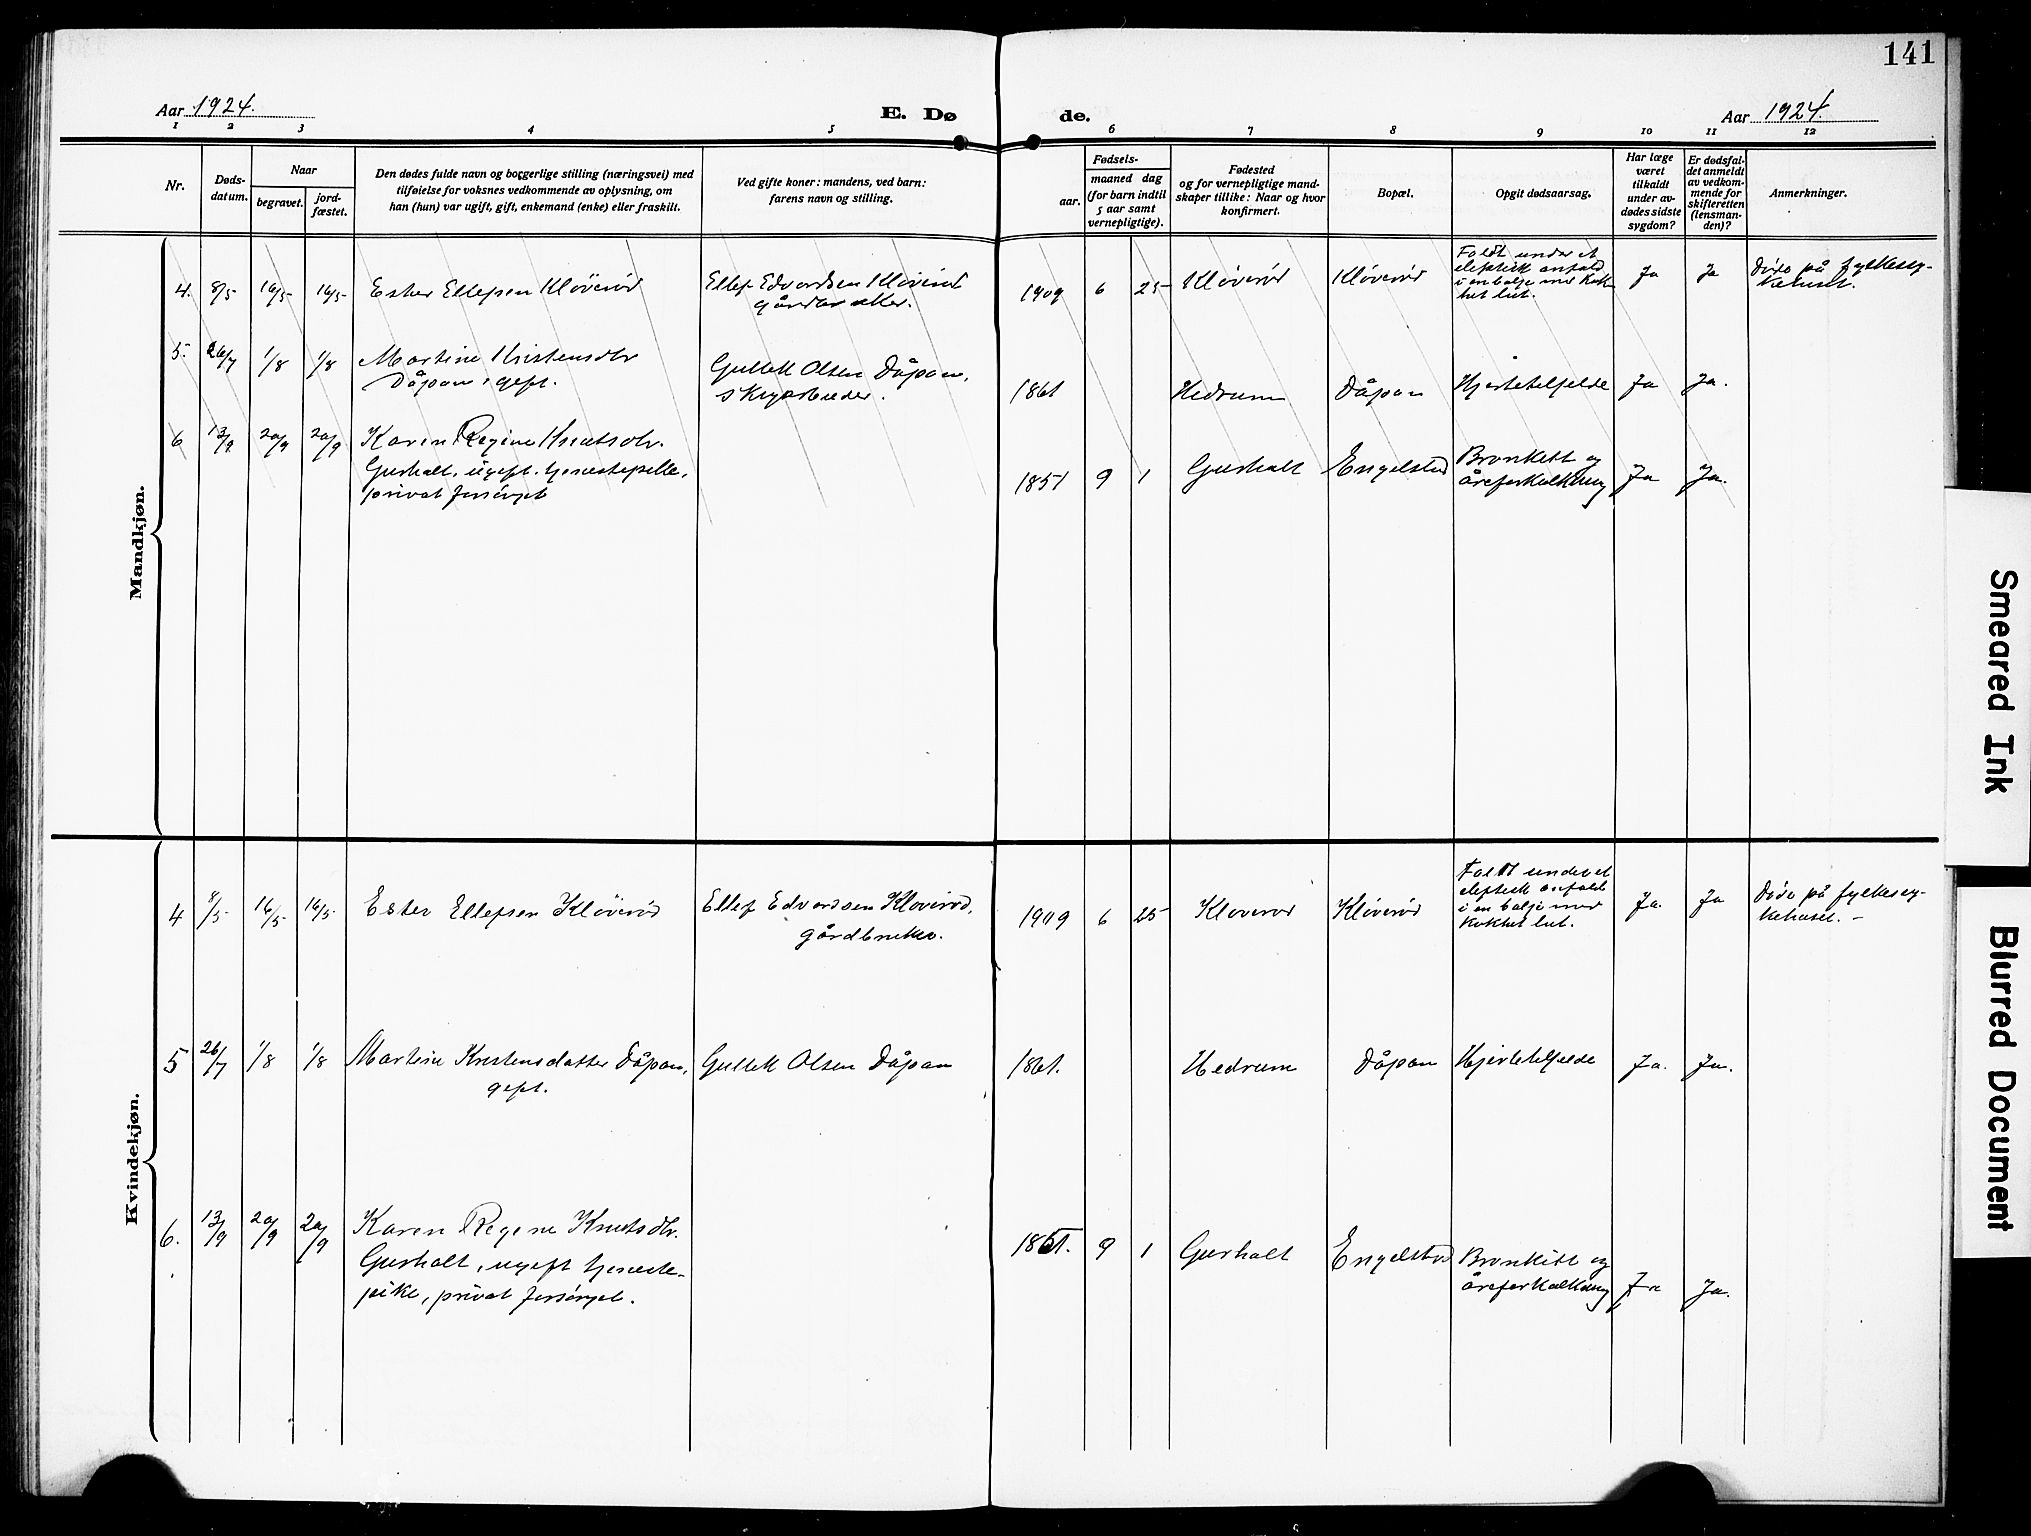 141
Aar 1924.
E. Dø
de.
Aar 1924.
1 2 3 4 5 6 7 8 9 10 11 12
Nr.
Døds-
datum.
Naar
begravet.
jord-
fæstet.
Den dødes fulde navn og borgerlige stilling (næringsvei) med
tilføielse for voksnes vedkommende av oplysning, om
han (hun) var ugift, gift, enkemand (enke) eller fraskilt.
Ved gifte koner: mandens, ved barn:
farens navn og stilling.
Fødsels-
aar.
maaned dag
(for barn indtil
5 aar samt
vernepligtige).
Fødested
og for vernepligtige mand-
skaper tillike: Naar og hvor
konfirmert.
Bopæl.
Opgit dødsaarsag.
Har læge
været
tilkaldt
under av-
dødes sidste
sygdom?
Er dødsfal-
det anmeldt
av vedkom-
mende for
skifteretten
(lensman-
den)?
Anmerkninger.
Mandkjøn.
4. 8/5 16/5 16/5 Ester Ellefsen Kløverød
Ellef Edvardsen Kløverød
1909 6 25 Kløverød Kløverød
Faldt under et
eleptisk anfald
i en balje med kok-
het lut.
Ja Ja
Døde på fylkessy-
kehuset.
5. 26/7 1/8 1/8 Martine Kristensdtr
Dåpan, gift.
Gullek Olsen Dåpan,
1861 Hedrum Dåpan Hjertelfelde Ja Ja.
6 13/9 20/9 20/9 Karen Regine Knutsdtr.
Gusholt, ugift,
privat forsørget
1851 9 1 Gusholt Engelstad
Bronkitt og
åreforkalkning
Ja Ja.
Kvindekjøn.
4 8/5 16/5 16/5 Ester Ellefsen Kløverød
Ellef Edvardsen Kløverød,
gårdbruker.
1909 6 25 Kløverød Kløverød
Faldt under et
eleptisk anfald
i en balje med
kokhet lut.
Ja. Ja
Døde på fylkessy-
kehuset. –
5 26/7 1/8 1/8 Martine Kristensdatter Dåpan,
gift.
Gullek Olsen Dåpan
1861. Hedrum Dåpan Hjertelfelde Ja. Ja.
6. 13/9 20/9 20/9 Karen Regine Knutsdtr.
Gusholt, ugift tjeneste-
pike, privat forsørget.
1851. 9 1 Gusholt Engelstad
Bronkitt og
åreforkalkning
Ja Ja.
Smeared Ink
Blurred Document